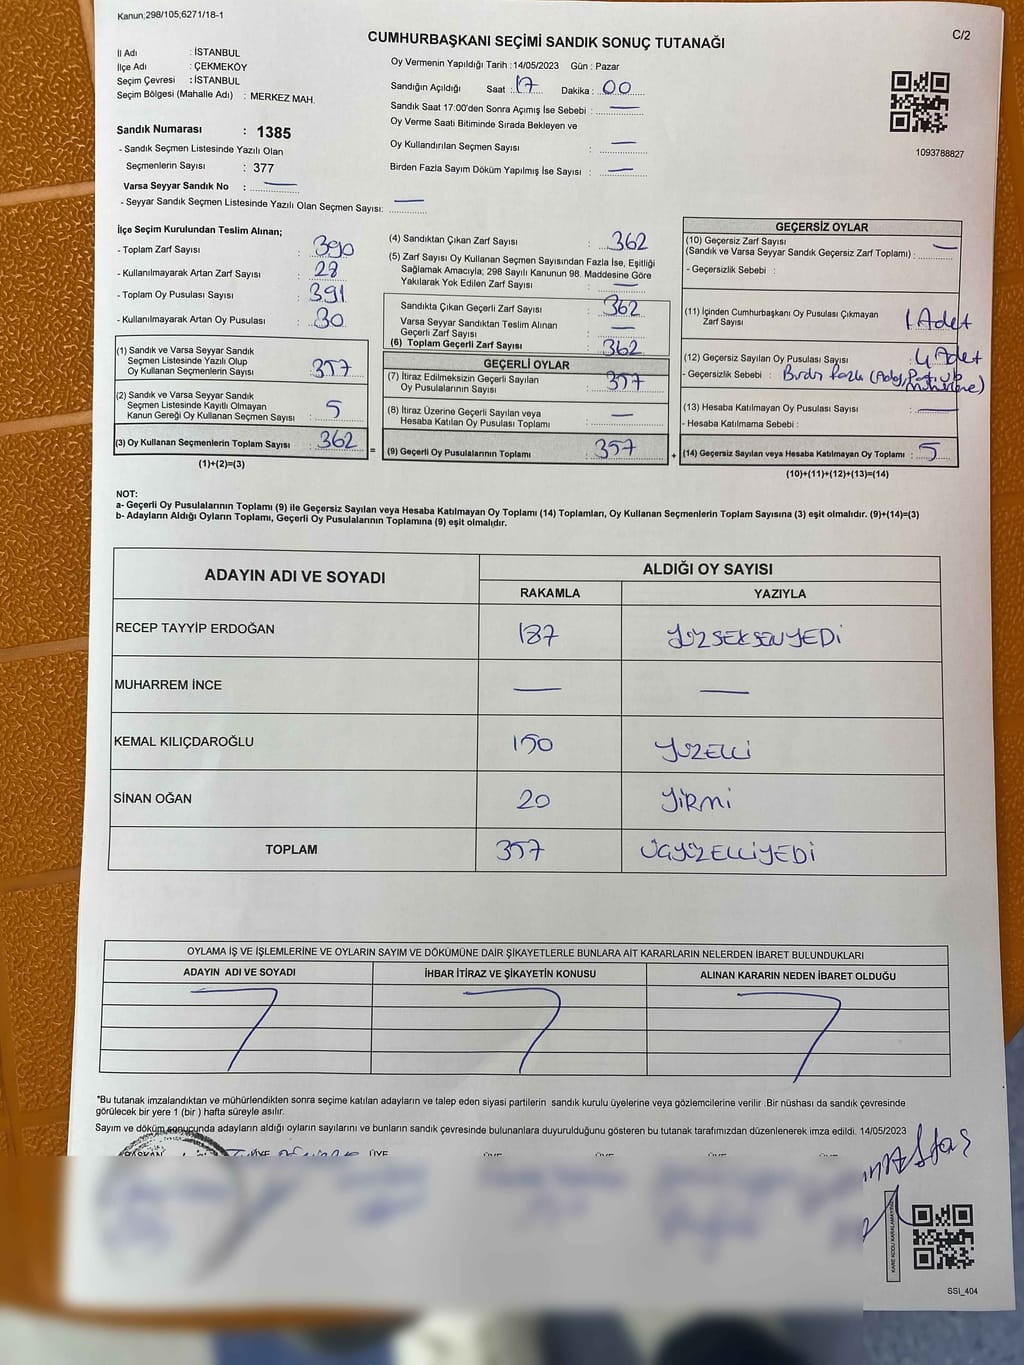 Kanun;298/105,6271/18-1
C/2
CUMHURBAŞKANI SEÇİMİ SANDIK SONUÇ TUTANAĞI
İl Adı : İSTANBUL
İlçe Adı : ÇEKMEKÖY
Seçim Çevresi : İSTANBUL
Seçim Bölgesi (Mahalle Adı) : MERKEZ MAH.
Sandık Numarası : 1385
- Sandık Seçmen Listesinde Yazılı Olan
Seçmenlerin Sayısı : 377
Varsa Seyyar Sandık No : —
- Seyyar Sandık Seçmen Listesinde Yazılı Olan Seçmen Sayısı: —
Oy Vermenin Yapıldığı Tarih :14/05/2023 Gün : Pazar
Sandığın Açıldığı Saat : 17 Dakika : 00
Sandık Saat 17:00'den Sonra Açımış İse Sebebi : —
Oy Verme Saati Bitiminde Sırada Bekleyen ve
Oy Kullandırılan Seçmen Sayısı : —
Birden Fazla Sayım Döküm Yapılmış İse Sayısı : —
1093788827
İlçe Seçim Kurulundan Teslim Alınan;
- Toplam Zarf Sayısı : 390
- Kullanılmayarak Artan Zarf Sayısı : 28
- Toplam Oy Pusulası Sayısı : 391
- Kullanılmayarak Artan Oy Pusulası : 30
(1) Sandık ve Varsa Seyyar Sandık
Seçmen Listesinde Yazılı Olup
Oy Kullanan Seçmenlerin Sayısı : 357
(2) Sandık ve Varsa Seyyar Sandık
Seçmen Listesinde Kayıtlı Olmayan
Kanun Gereği Oy Kullanan Seçmen Sayısı : 5
(3) Oy Kullanan Seçmenlerin Toplam Sayısı : 362
(1)+(2)=(3)
=
(4) Sandıktan Çıkan Zarf Sayısı : 362
(5) Zarf Sayısı Oy Kullanan Seçmen Sayısından Fazla İse, Eşitliği
Sağlamak Amacıyla; 298 Sayılı Kanunun 98. Maddesine Göre
Yakılarak Yok Edilen Zarf Sayısı : —
Sandıkta Çıkan Geçerli Zarf Sayısı : 362
Varsa Seyyar Sandıktan Teslim Alınan
Geçerli Zarf Sayısı : —
(6) Toplam Geçerli Zarf Sayısı : 362
GEÇERLİ OYLAR
(7) İtiraz Edilmeksizin Geçerli Sayılan
Oy Pusulalarının Sayısı : 357
(8) İtiraz Üzerine Geçerli Sayılan veya
Hesaba Katılan Oy Pusulası Toplamı : —
(9) Geçerli Oy Pusulalarının Toplamı : 357
+
GEÇERSİZ OYLAR
(10) Geçersiz Zarf Sayısı
(Sandık ve Varsa Seyyar Sandık Geçersiz Zarf Toplamı) : —
- Geçersizlik Sebebi :
(11) İçinden Cumhurbaşkanı Oy Pusulası Çıkmayan
Zarf Sayısı : 1 Adet
(12) Geçersiz Sayılan Oy Pusulası Sayısı : 4 Adet
- Geçersizlik Sebebi : Birden fazla
(13) Hesaba Katılmayan Oy Pusulası Sayısı : —
- Hesaba Katılmama Sebebi :
(14) Geçersiz Sayılan veya Hesaba Katılmayan Oy Toplamı : 5
(10)+(11)+(12)+(13)=(14)
NOT:
a- Geçerli Oy Pusulalarının Toplamı (9) ile Geçersiz Sayılan veya Hesaba Katılmayan Oy Toplamı (14) Toplamları, Oy Kullanan Seçmenlerin Toplam Sayısına (3) eşit olmalıdır. (9)+(14)=(3)
b- Adayların Aldığı Oyların Toplamı, Geçerli Oy Pusulalarının Toplamına (9) eşit olmalıdır.
ADAYIN ADI VE SOYADI
ALDIĞI OY SAYISI
RAKAMLA YAZIYLA
RECEP TAYYİP ERDOĞAN 187 YÜZSEKSENYEDİ
MUHARREM İNCE — —
KEMAL KILIÇDAROĞLU 150 YÜZELLİ
SİNAN OĞAN 20 YİRMİ
TOPLAM 357 ÜÇYÜZELLİYEDİ
OYLAMA İŞ VE İŞLEMLERİNE VE OYLARIN SAYIM VE DÖKÜMÜNE DAİR ŞİKAYETLERLE BUNLARA AİT KARARLARIN NELERDEN İBARET BULUNDUKLARI
ADAYIN ADI VE SOYADI İHBAR İTİRAZ VE ŞİKAYETİN KONUSU ALINAN KARARIN NEDEN İBARET OLDUĞU
*Bu tutanak imzalandıktan ve mühürlendikten sonra seçime katılan adayların ve talep eden siyasi partilerin sandık kurulu üyelerine veya gözlemcilerine verilir .Bir nüshası da sandık çevresinde
görülecek bir yere 1 (bir ) hafta süreyle asılır.
Sayım ve döküm sonucunda adayların aldığı oyların sayılarını ve bunların sandık çevresinde bulunanlara duyurulduğunu gösteren bu tutanak tarafımızdan düzenlenerek imza edildi. 14/05/2023
BAŞKAN ÜYE ÜYE ÜYE ÜYE ÜYE
SSI_404